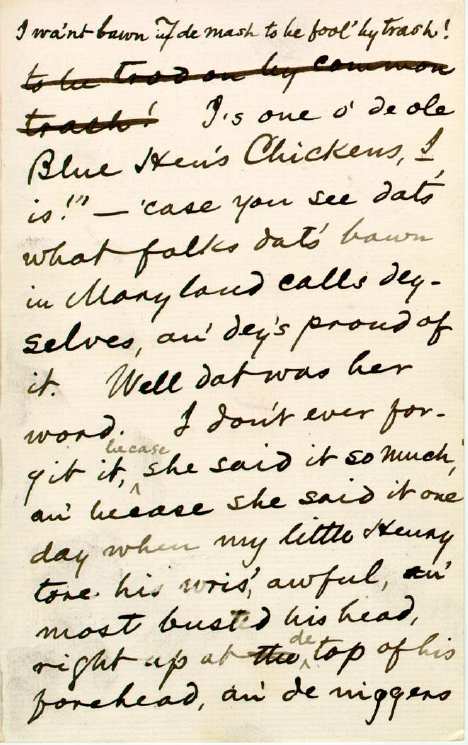 I wa'nt bawn in de mash to be fool' by trash!
to be trod on by common
trash! I's one o' de ole
Blue Hen's Chickens, I
is!" — 'case you see dat's
what folks dat's bawn
in Maryland calls dey-
selves, an' dey's proud of
it. Well dat was her
word. I don't ever for-
becase
git it, she said it so much,
an' becase she said it one
day when my little Henry
tore his wris', awful, an'
most busted his head,
de
right up at the top of his
forehead, an' de niggers